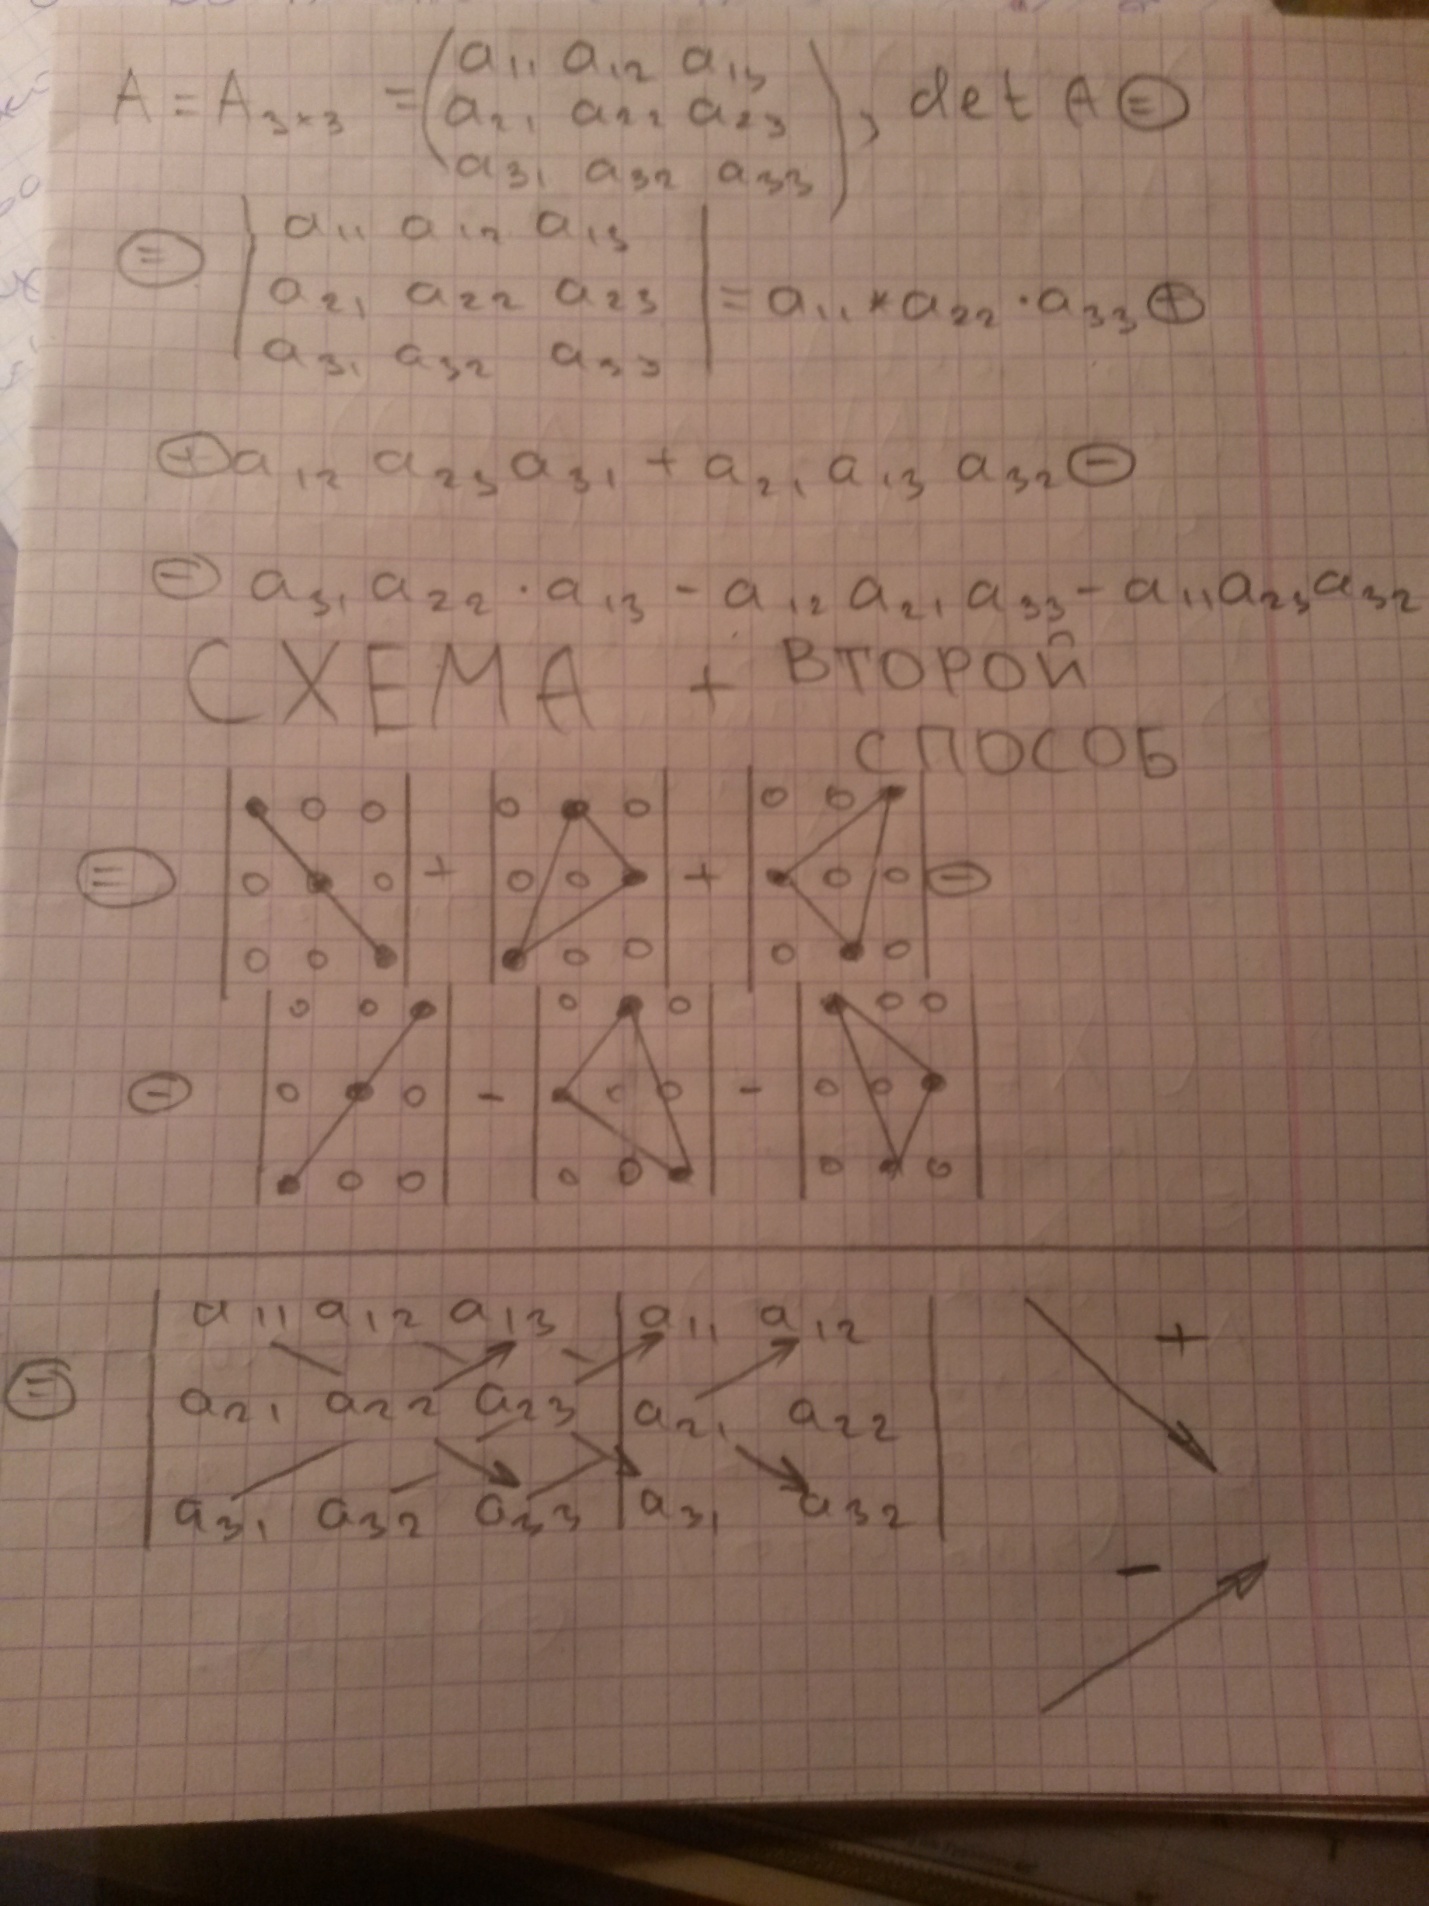 A = A₃ₓ₃ = (a₁₁ a₁₂ a₁₃
a₂₁ a₂₂ a₂₃
a₃₁ a₃₂ a₃₃), det A ⊜
⊜ | a₁₁ a₁₂ a₁₃
a₂₁ a₂₂ a₂₃
a₃₁ a₃₂ a₃₃ | = a₁₁ * a₂₂ · a₃₃ ⊕
⊕ a₁₂ a₂₃ a₃₁ + a₂₁ a₁₃ a₃₂ ⊖
⊖ a₃₁ a₂₂ · a₁₃ - a₁₂ a₂₁ a₃₃ - a₁₁ a₂₃ a₃₂
СХЕМА + ВТОРОЙ
СПОСОБ
⊜ + + ⊖
⊖ - -
⊜ | a₁₁ a₁₂ a₁₃ | a₁₁ a₁₂ | +
a₂₁ a₂₂ a₂₃ | a₂₁ a₂₂
a₃₁ a₃₂ a₃₃ | a₃₁ a₃₂
-